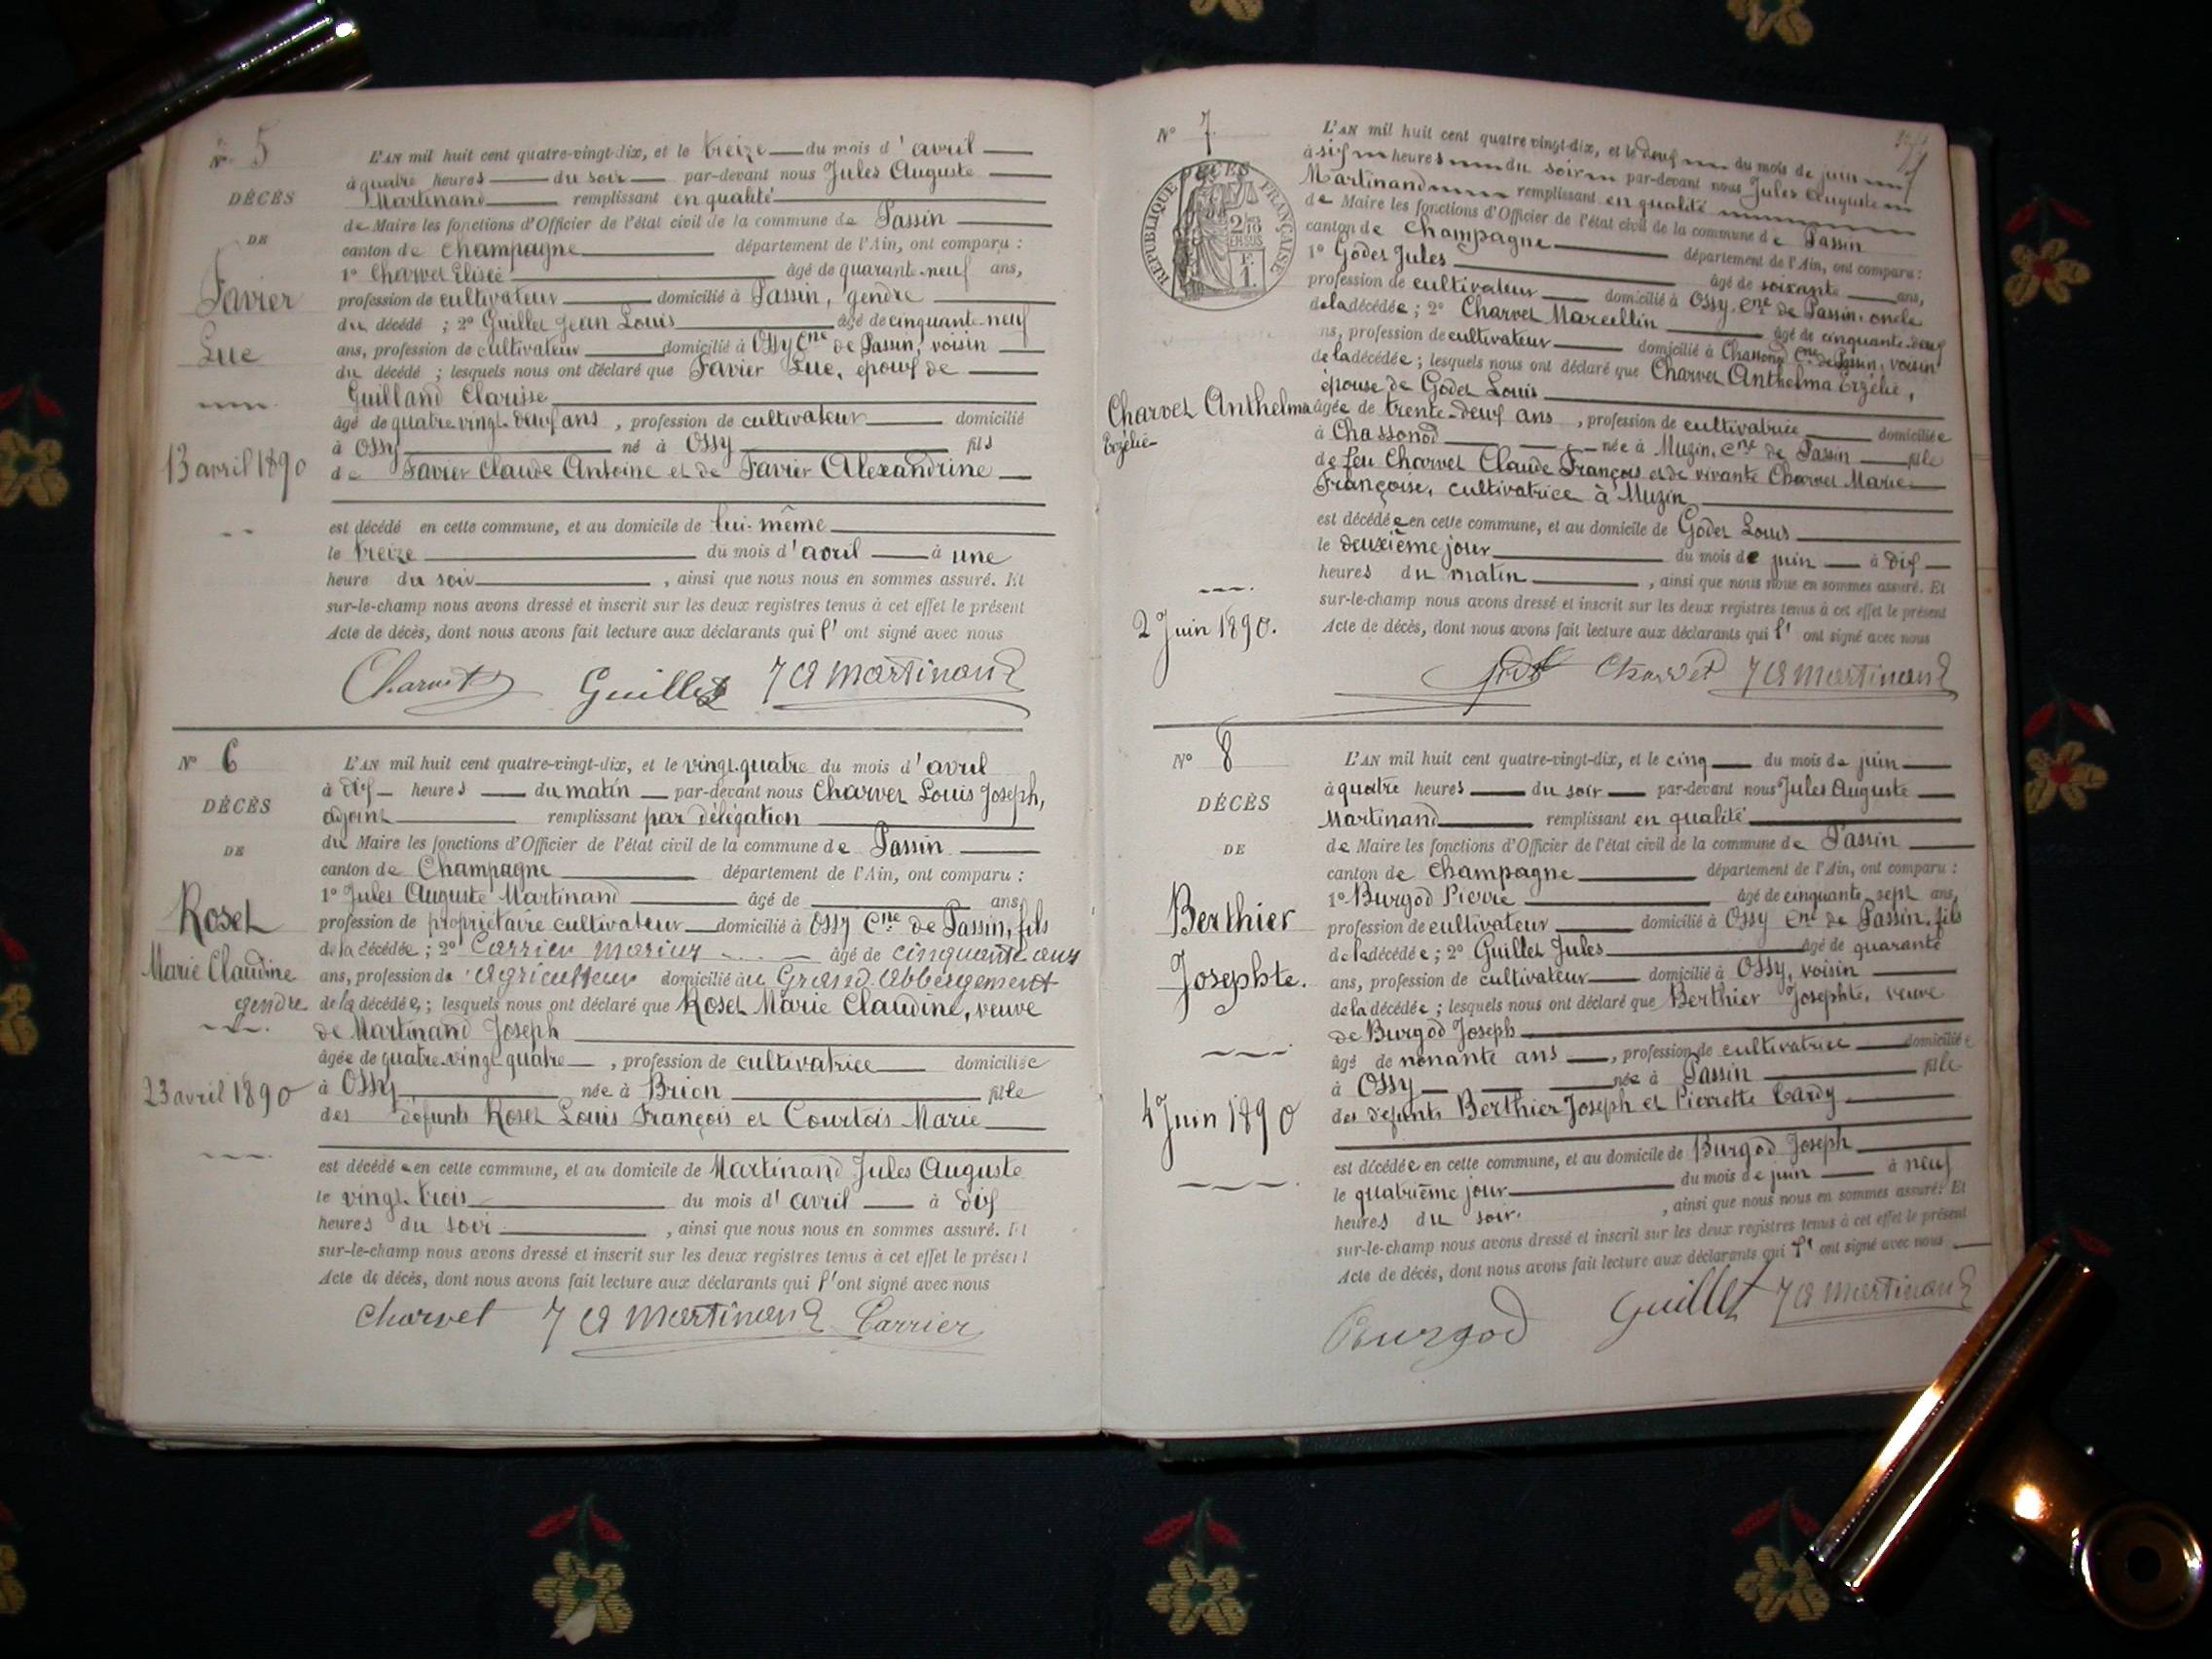 N° 5
DÉCÈS
DE
Favier
Luc
13 avril 1890
L'AN mil huit cent quatre-vingt-dix, et le treize du mois d'avril
à quatre heures du soir par-devant nous Jules Auguste
Martinand remplissant en qualité
de Maire les fonctions d'Officier de l'état civil de la commune de Passin
canton de Champagne département de l'Ain, ont comparu :
1° Charvet Elisée âgé de quarante-neuf ans,
profession de cultivateur domicilié à Passin, gendre
du décédé ; 2° Guillet Jean Louis âgé de cinquante-neuf
ans, profession de cultivateur domicilié à Ossy Cne de Passin, voisin
du décédé ; lesquels nous ont déclaré que Favier Luc, époux de
Guilland Clarisse
âgé de quatre vingt deux ans , profession de cultivateur domicilié
à Ossy né à Ossy fils
de Favier Claude Antoine et de Favier Alexandrine
est décédé en cette commune, et au domicile de lui-même
le treize du mois d'avril à une
heure du soir , ainsi que nous nous en sommes assuré. Et
sur-le-champ nous avons dressé et inscrit sur les deux registres tenus à cet effet le présent
Acte de décès, dont nous avons fait lecture aux déclarants qui l'ont signé avec nous
Charvet Guillet J A Martinand
N° 6
DÉCÈS
DE
Roset
Marie Claudine
23 avril 1890
L'AN mil huit cent quatre-vingt-dix, et le vingt quatre du mois d'avril
à dix heures du matin par-devant nous Charvet Louis Joseph,
adjoint remplissant par délégation
du Maire les fonctions d'Officier de l'état civil de la commune de Passin
canton de Champagne département de l'Ain, ont comparu :
1° Jules Auguste Martinand âgé de ans,
profession de propriétaire cultivateur domicilié à Ossy Cne de Passin, fils
de la décédée ; 2° Carrier Marius âgé de cinquante ans
ans, profession de agriculteur domicilié au Grand abbergement
gendre de la décédée, ; lesquels nous ont déclaré que Roset Marie Claudine, veuve
de Martinand Joseph
âgée de quatre-vingt quatre , profession de cultivatrice domiciliée
à Ossy née à Brion fille
des défunts Roset Louis François et Courtois Marie
est décédée en cette commune, et au domicile de Martinand Jules Auguste
le vingt trois du mois d'avril à dix
heures du soir , ainsi que nous nous en sommes assuré. Et
sur-le-champ nous avons dressé et inscrit sur les deux registres tenus à cet effet le présent
Acte de décès, dont nous avons fait lecture aux déclarants qui l'ont signé avec nous
Charvet J A Martinand Carrier
N° 7
DÉCÈS
RÉPUBLIQUE FRANÇAISE
2/10
EN SUS
1 F.
Charvet Anthelma
Erzélie
2 Juin 1890.
L'AN mil huit cent quatre vingt-dix, et le deux du mois de juin
à six heures du soir par-devant nous Jules Auguste
Martinand remplissant en qualité
de Maire les fonctions d'Officier de l'état civil de la commune de Passin
canton de Champagne département de l'Ain, ont comparu :
1° Godet Jules âgé de soixante ans,
profession de cultivateur domicilié à Ossy, Cne de Passin, oncle
de la décédée ; 2° Charvet Marcellin âgé de cinquante-deux
ans, profession de cultivateur domicilié à Chassonod Cne de Passin, voisin
de la décédée ; lesquels nous ont déclaré que Charvet Anthelma Erzélie,
épouse de Godet Louis
âgée de trente-deux ans , profession de cultivatrice domiciliée
à Chassonod née à Muzin, Cne de Passin fille
de feu Charvet Claude François et de vivante Charvet Marie
Françoise, cultivatrice à Muzin
est décédée en cette commune, et au domicile de Godet Louis
le deuxième jour du mois de juin à dix
heures du matin , ainsi que nous nous en sommes assuré. Et
sur-le-champ nous avons dressé et inscrit sur les deux registres tenus à cet effet le présent
Acte de décès, dont nous avons fait lecture aux déclarants qui l'ont signé avec nous
Charvet J A Martinand
N° 8
DÉCÈS
DE
Berthier
Josephte.
4 Juin 1890
L'AN mil huit cent quatre-vingt-dix, et le cinq du mois de juin
à quatre heures du soir par-devant nous Jules Auguste
Martinand remplissant en qualité
de Maire les fonctions d'Officier de l'état civil de la commune de Passin
canton de Champagne département de l'Ain, ont comparu :
1° Burgod Pierre âgé de cinquante sept ans,
profession de cultivateur domicilié à Ossy Cne de Passin, fils
de la décédée ; 2° Guillet Jules âgé de quarante
ans, profession de cultivateur domicilié à Ossy, voisin
de la décédée ; lesquels nous ont déclaré que Berthier Josephte, veuve
de Burgod Joseph
âgé de nonante ans , profession de cultivatrice domiciliée
à Ossy née à Passin fille
des défunts Berthier Joseph et Pierrette Cardy
est décédée en cette commune, et au domicile de Burgod Joseph
le quatrième jour du mois de juin à neuf
heures du soir. , ainsi que nous nous en sommes assuré. Et
sur-le-champ nous avons dressé et inscrit sur les deux registres tenus à cet effet le présent
Acte de décès, dont nous avons fait lecture aux déclarants qui l'ont signé avec nous
Burgod Guillet J A Martinand